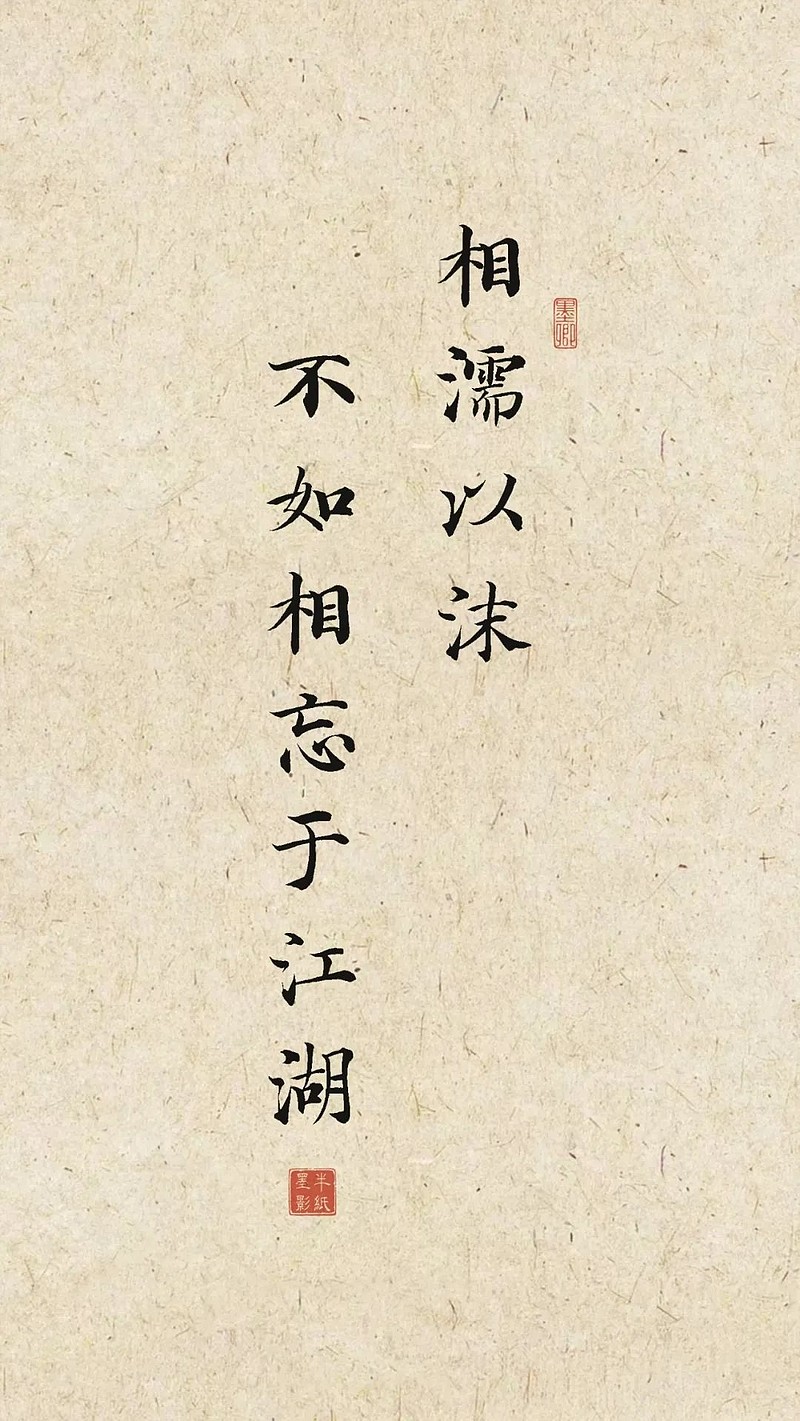 相濡以沫
不如相忘于江湖
墨卿
半紙
墨影